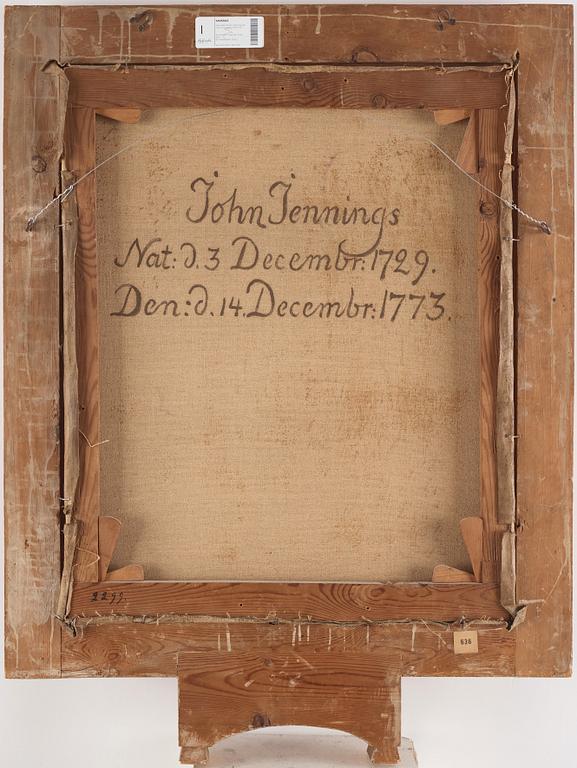 1
John Jennings
Nat: d. 3 Decembr: 1729.
Den: d. 14. Decembr: 1773.
2299.
636